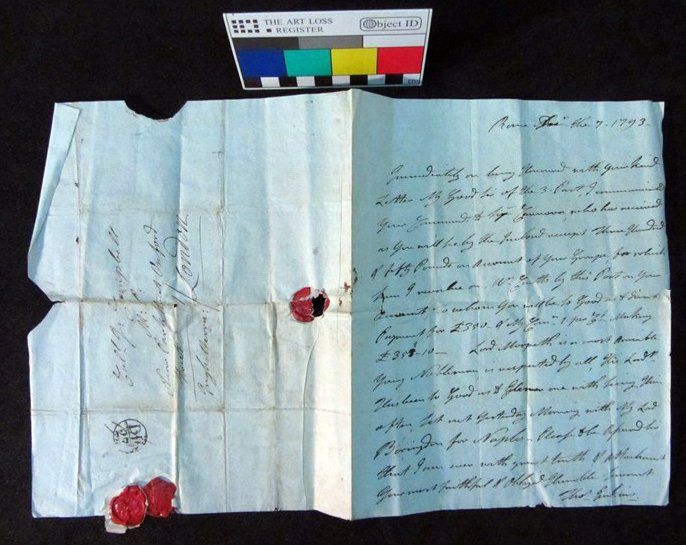 THE ART LOSS
REGISTER
Object ID
Rome Decr. the 7. 1793.
Immediately on being Honourd with Your kind
Letter My Good Sir of the 3. Past I communicated
Your Command to Sigr. Canova, who has received
as You will see by the Inclosed receipt Three Hundred
& fifty Pounds on Account of Your Groupe for which
Sum I on Wm. by this Post on Your
Account to whom You will be so Good as to direct
Payment for £350. & My 1 pr Ct. Making
£353.10— Lord Morpeth is a most Amiable
Young Nobleman is respected by all, His Lordp.
Has been so Good as to me with being
often Set out Yesterday Morning with My Lord
Boringdon for Naples Please to be Assured Sir
that I am ever with great truth & Attachment
Your most faithful & Obliged Humble Servant
Thos. Jenkins
Campbell
Oxford
London